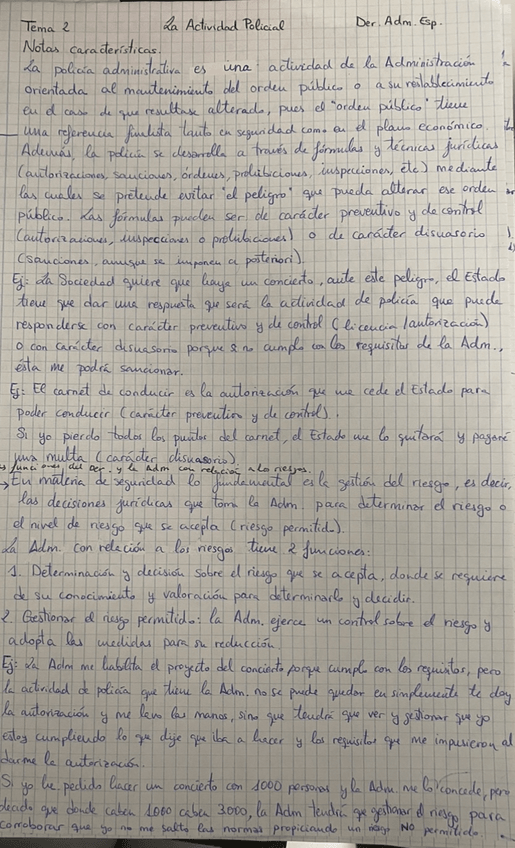 Tema 2 La Actividad Policial Der. Adm. Esp.
Notas características.
La policía administrativa es una actividad de la Administración
orientada al mantenimiento del orden público o a su restablecimiento
en el caso de que resultase alterado, pues el "orden público" tiene
una referencia finalista tanto en seguridad como en el plano económico.
Además, la policía se desarrolla a través de fórmulas y técnicas jurídicas
(autorizaciones, sanciones, órdenes, prohibiciones, inspecciones, etc) mediante
las cuales se pretende evitar "el peligro" que pueda alterar ese orden
público. Las fórmulas pueden ser de carácter preventivo y de control
(autorizaciones, inspecciones o prohibiciones) o de carácter disuasorio
(sanciones, aunque se imponen a posteriori).
Ej: La Sociedad quiere que haya un concierto, ante este peligro, el Estado
tiene que dar una respuesta que será la actividad de policía que puede
responderse con carácter preventivo y de control (licencia/autorización)
o con carácter disuasorio porque si no cumplo con los requisitos de la Adm.,
ésta me podrá sancionar.
Ej: El carnet de conducir es la autorización que me cede el Estado para
poder conducir (carácter preventivo y de control).
Si yo pierdo todos los puntos del carnet, el Estado me lo quitará y pagaré
una multa (carácter disuasorio).
funciones del Der. y la Adm con relación a los riesgos.
→ En materia de seguridad lo fundamental es la gestión del riesgo, es decir,
las decisiones jurídicas que toma la Adm. para determinar el riesgo o
el nivel de riesgo que se acepta (riesgo permitido).
La Adm. con relación a los riesgos tiene 2 funciones:
1. Determinación y decisión sobre el riesgo que se acepta, donde se requiere
de su conocimiento y valoración para determinarlo y decidir.
2. Gestionar el riesgo permitido: la Adm. ejerce un control sobre el riesgo y
adopta las medidas para su reducción.
Ej: La Adm me habilita el proyecto del concierto porque cumplo con los requisitos, pero
la actividad de policía que tiene la Adm. no se puede quedar en simplemente te doy
la autorización y me lavo las manos, sino que tendrá que ver y gestionar que yo
estoy cumpliendo lo que dije que iba a hacer y los requisitos que me impusieron al
darme la autorización.
Si yo he pedido hacer un concierto con 1000 personas y la Adm. me lo concede, pero
decido que donde caben 1000 caben 3.000, la Adm tendrá que gestionar el riesgo para
corroborar que yo no me salto las normas propiciando un riesgo NO permitido.